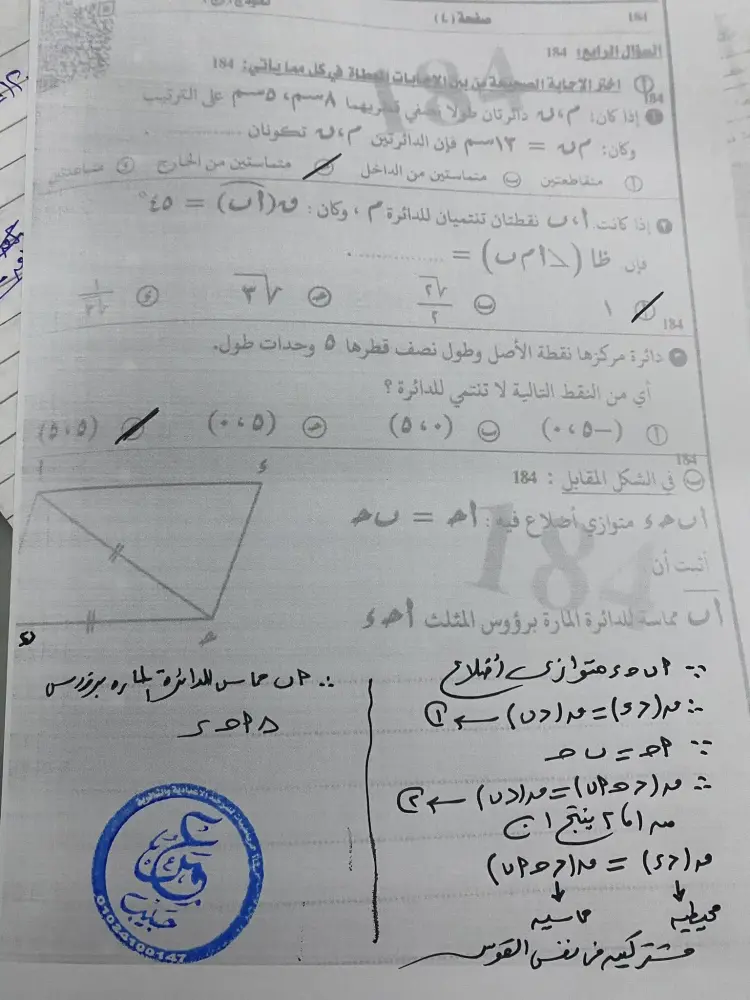 184
صفحة (٤)
السؤال الرابع: 184
أ اختر الإجابة الصحيحة من بين الإجابات المعطاة في كل مما يأتي: 184
184
١ إذا كان: م، ن دائرتان طولا نصفي قطريهما ٨سم، ٥سم على الترتيب
وكان: م ن = ١٣سم فإن الدائرتين م، ن تكونان ............
أ متقاطعتين ب متماستين من الداخل ج متماستين من الخارج د متباعدتين
٢ إذا كانت أ، ب نقطتان تنتميان للدائرة م، وكان: ق(أب) = ٤٥°
فإن ظا (∠أ م ب) = ............
أ ١ ب √٢/٢ ج √٣ د ١/√٣
184
٣ دائرة مركزها نقطة الأصل وطول نصف قطرها ٥ وحدات طول.
أي من النقط التالية لا تنتمي للدائرة ؟
أ (-٥، ٠) ب (٠، ٥) ج (٥، ٠) د (٥، ٥)
184
ب في الشكل المقابل: 184
أ ب ج د متوازي أضلاع فيه: أج = ب ج
أثبت أن
أب مماسة للدائرة المارة برؤوس المثلث أ ج د
أ
د
ج
ب
∵ أ ب ج د متوازي أضلاع
∴ ق(∠د) = ق(∠ب) ← ①
∵ أج = ب ج
∴ ق(∠ج أ ب) = ق(∠ب) ← ②
من ١ ، ٢ ينتج ان
ق(∠د) = ق(∠ج أ ب)
↓ ↓
محيطيه مماسيه
مشتركين فى نفس القوس
∴ أ ب مماس للدائرة الماره برؤوس
△ أ ج د
حبيب
01024100147